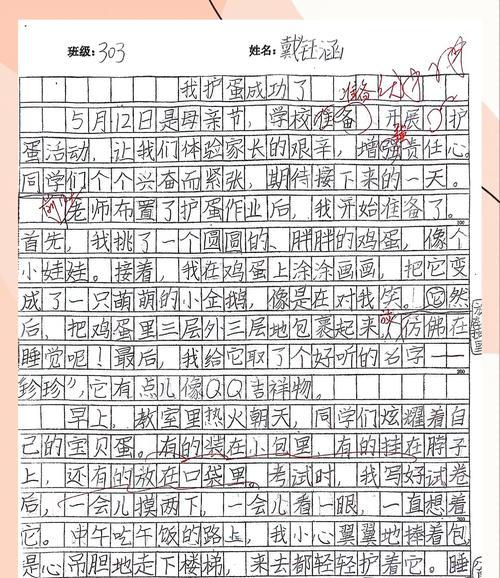 班级：303 姓名：戴钰涵
我护蛋成功了
5月12日是母亲节，学校准备开展护
准备
蛋活动，让我们体验家长的艰辛，增强责任心。
强
同学们个个兴奋而紧张，期待接下来的一天。
老师布置了护蛋作业后，我开始准备了。
首先，我挑了一个圆圆的、胖胖的鸡蛋，像个
小娃娃。接着，我在鸡蛋上涂涂画画，把它变
成了一只萌萌的小企鹅，像是在对我笑。它然
后，把鸡蛋里三层外三层地包裹起来，仿佛在
睡觉呢！最后，我给它取了个好听的名字——
“珍珍”，它有点儿像QQ吉祥物。
早上，教室里热火朝天，同学们炫耀着自
己的宝贝蛋。有的装在小包里，有的挂在脖子
上，还有的放在口袋里。考试时，我写好试卷
后，一会儿摸两下，一会儿看一眼，一直想着
它。中午吃午饭的路上，我小心翼翼地捧着包，
是心吊胆地走下楼梯，来去都轻轻护着它。睡